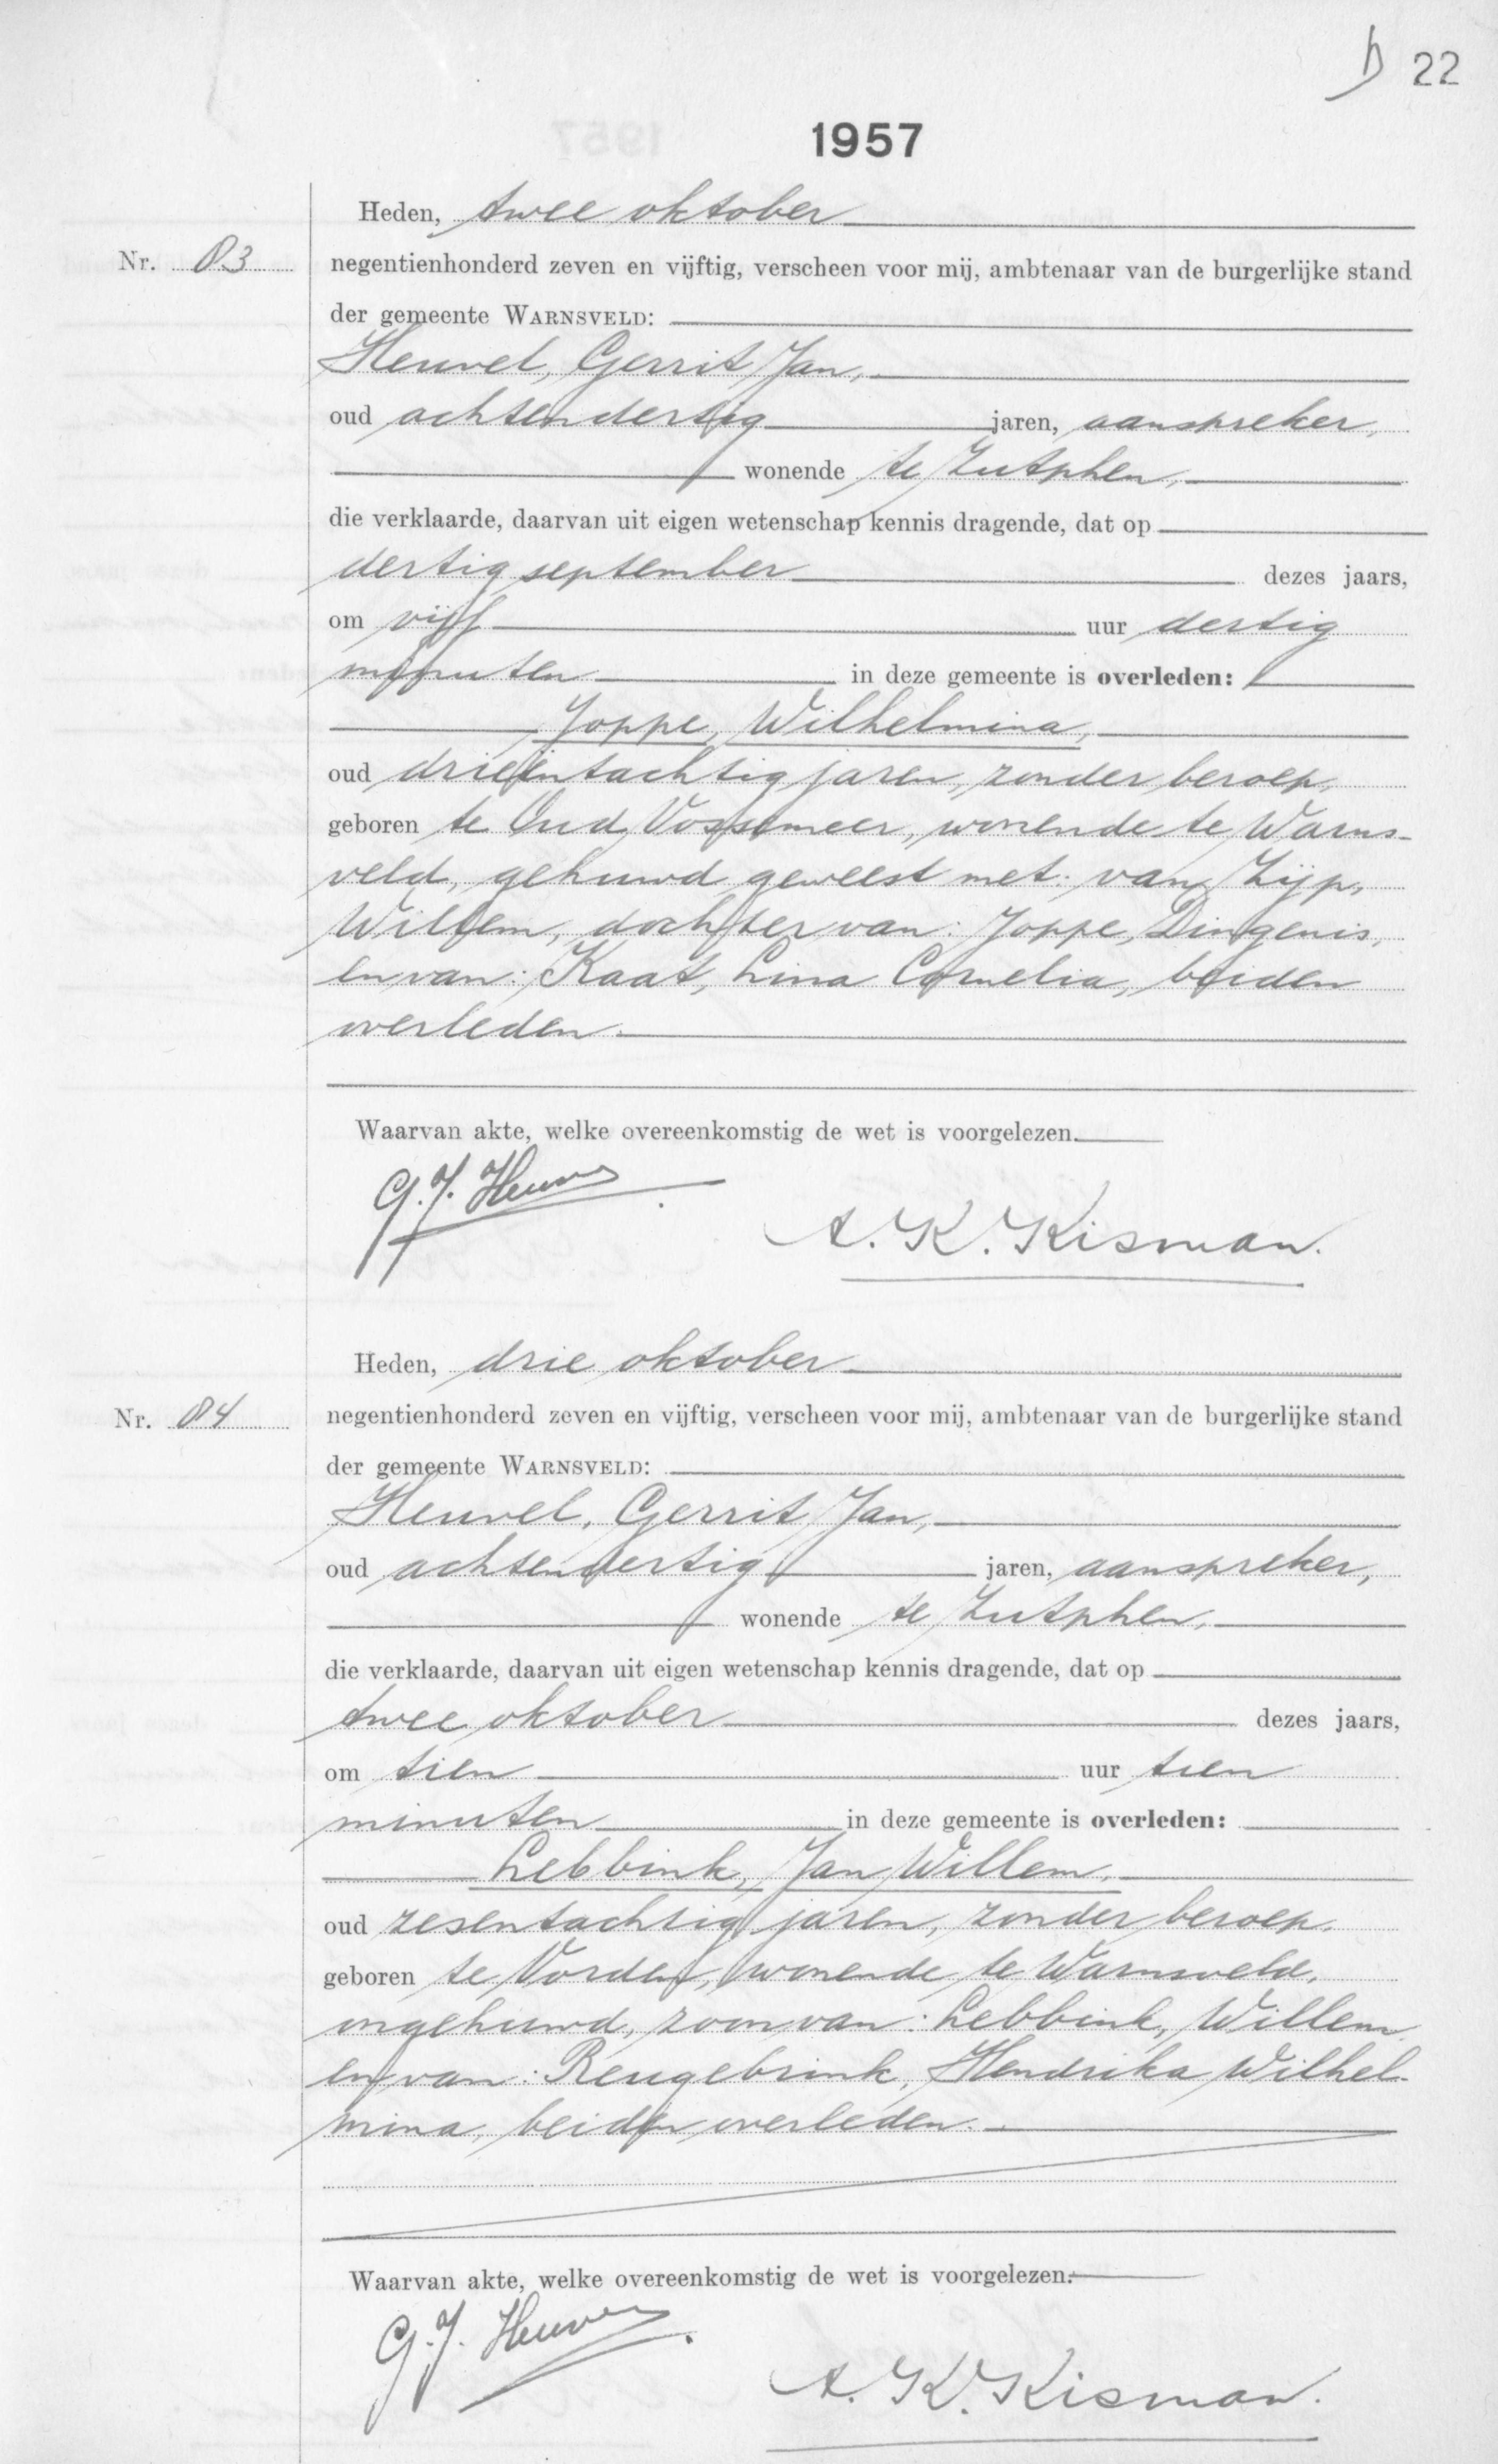 D 22
1957
Heden, twee oktober
Nr. 83 negentienhonderd zeven en vijftig, verscheen voor mij, ambtenaar van de burgerlijke stand
der gemeente WARNSVELD:
Heuvel, Gerrit Jan,
oud achtendertig jaren, aanspreker,
wonende te Zutphen,
die verklaarde, daarvan uit eigen wetenschap kennis dragende, dat op
dertig september dezes jaars,
om vijf uur dertig
minuten in deze gemeente is overleden:
Joppe, Wilhelmina,
oud drieëntachtig jaren, zonder beroep,
geboren te Oud Vossemeer, wonende te Warns-
veld, gehuwd geweest met: van Zijp,
Willem, dochter van: Joppe, Dingenis,
en van: Kaat, Lina Cornelia, beiden
overleden.
Waarvan akte, welke overeenkomstig de wet is voorgelezen.
G. J. Heuvel
A. K. Kisman.
Heden, drie oktober
Nr. 84 negentienhonderd zeven en vijftig, verscheen voor mij, ambtenaar van de burgerlijke stand
der gemeente WARNSVELD:
Heuvel, Gerrit Jan,
oud achtendertig jaren, aanspreker,
wonende te Zutphen,
die verklaarde, daarvan uit eigen wetenschap kennis dragende, dat op
twee oktober dezes jaars,
om tien uur tien
minuten in deze gemeente is overleden:
Lebbink, Jan Willem,
oud zesentachtig jaren, zonder beroep,
geboren te Vorden, wonende te Warnsveld,
ongehuwd, zoon van: Lebbink, Willem
en van: Reugebrink, Hendrika Wilhel-
mina, beiden overleden.
Waarvan akte, welke overeenkomstig de wet is voorgelezen.
G. J. Heuvel
A. K. Kisman.